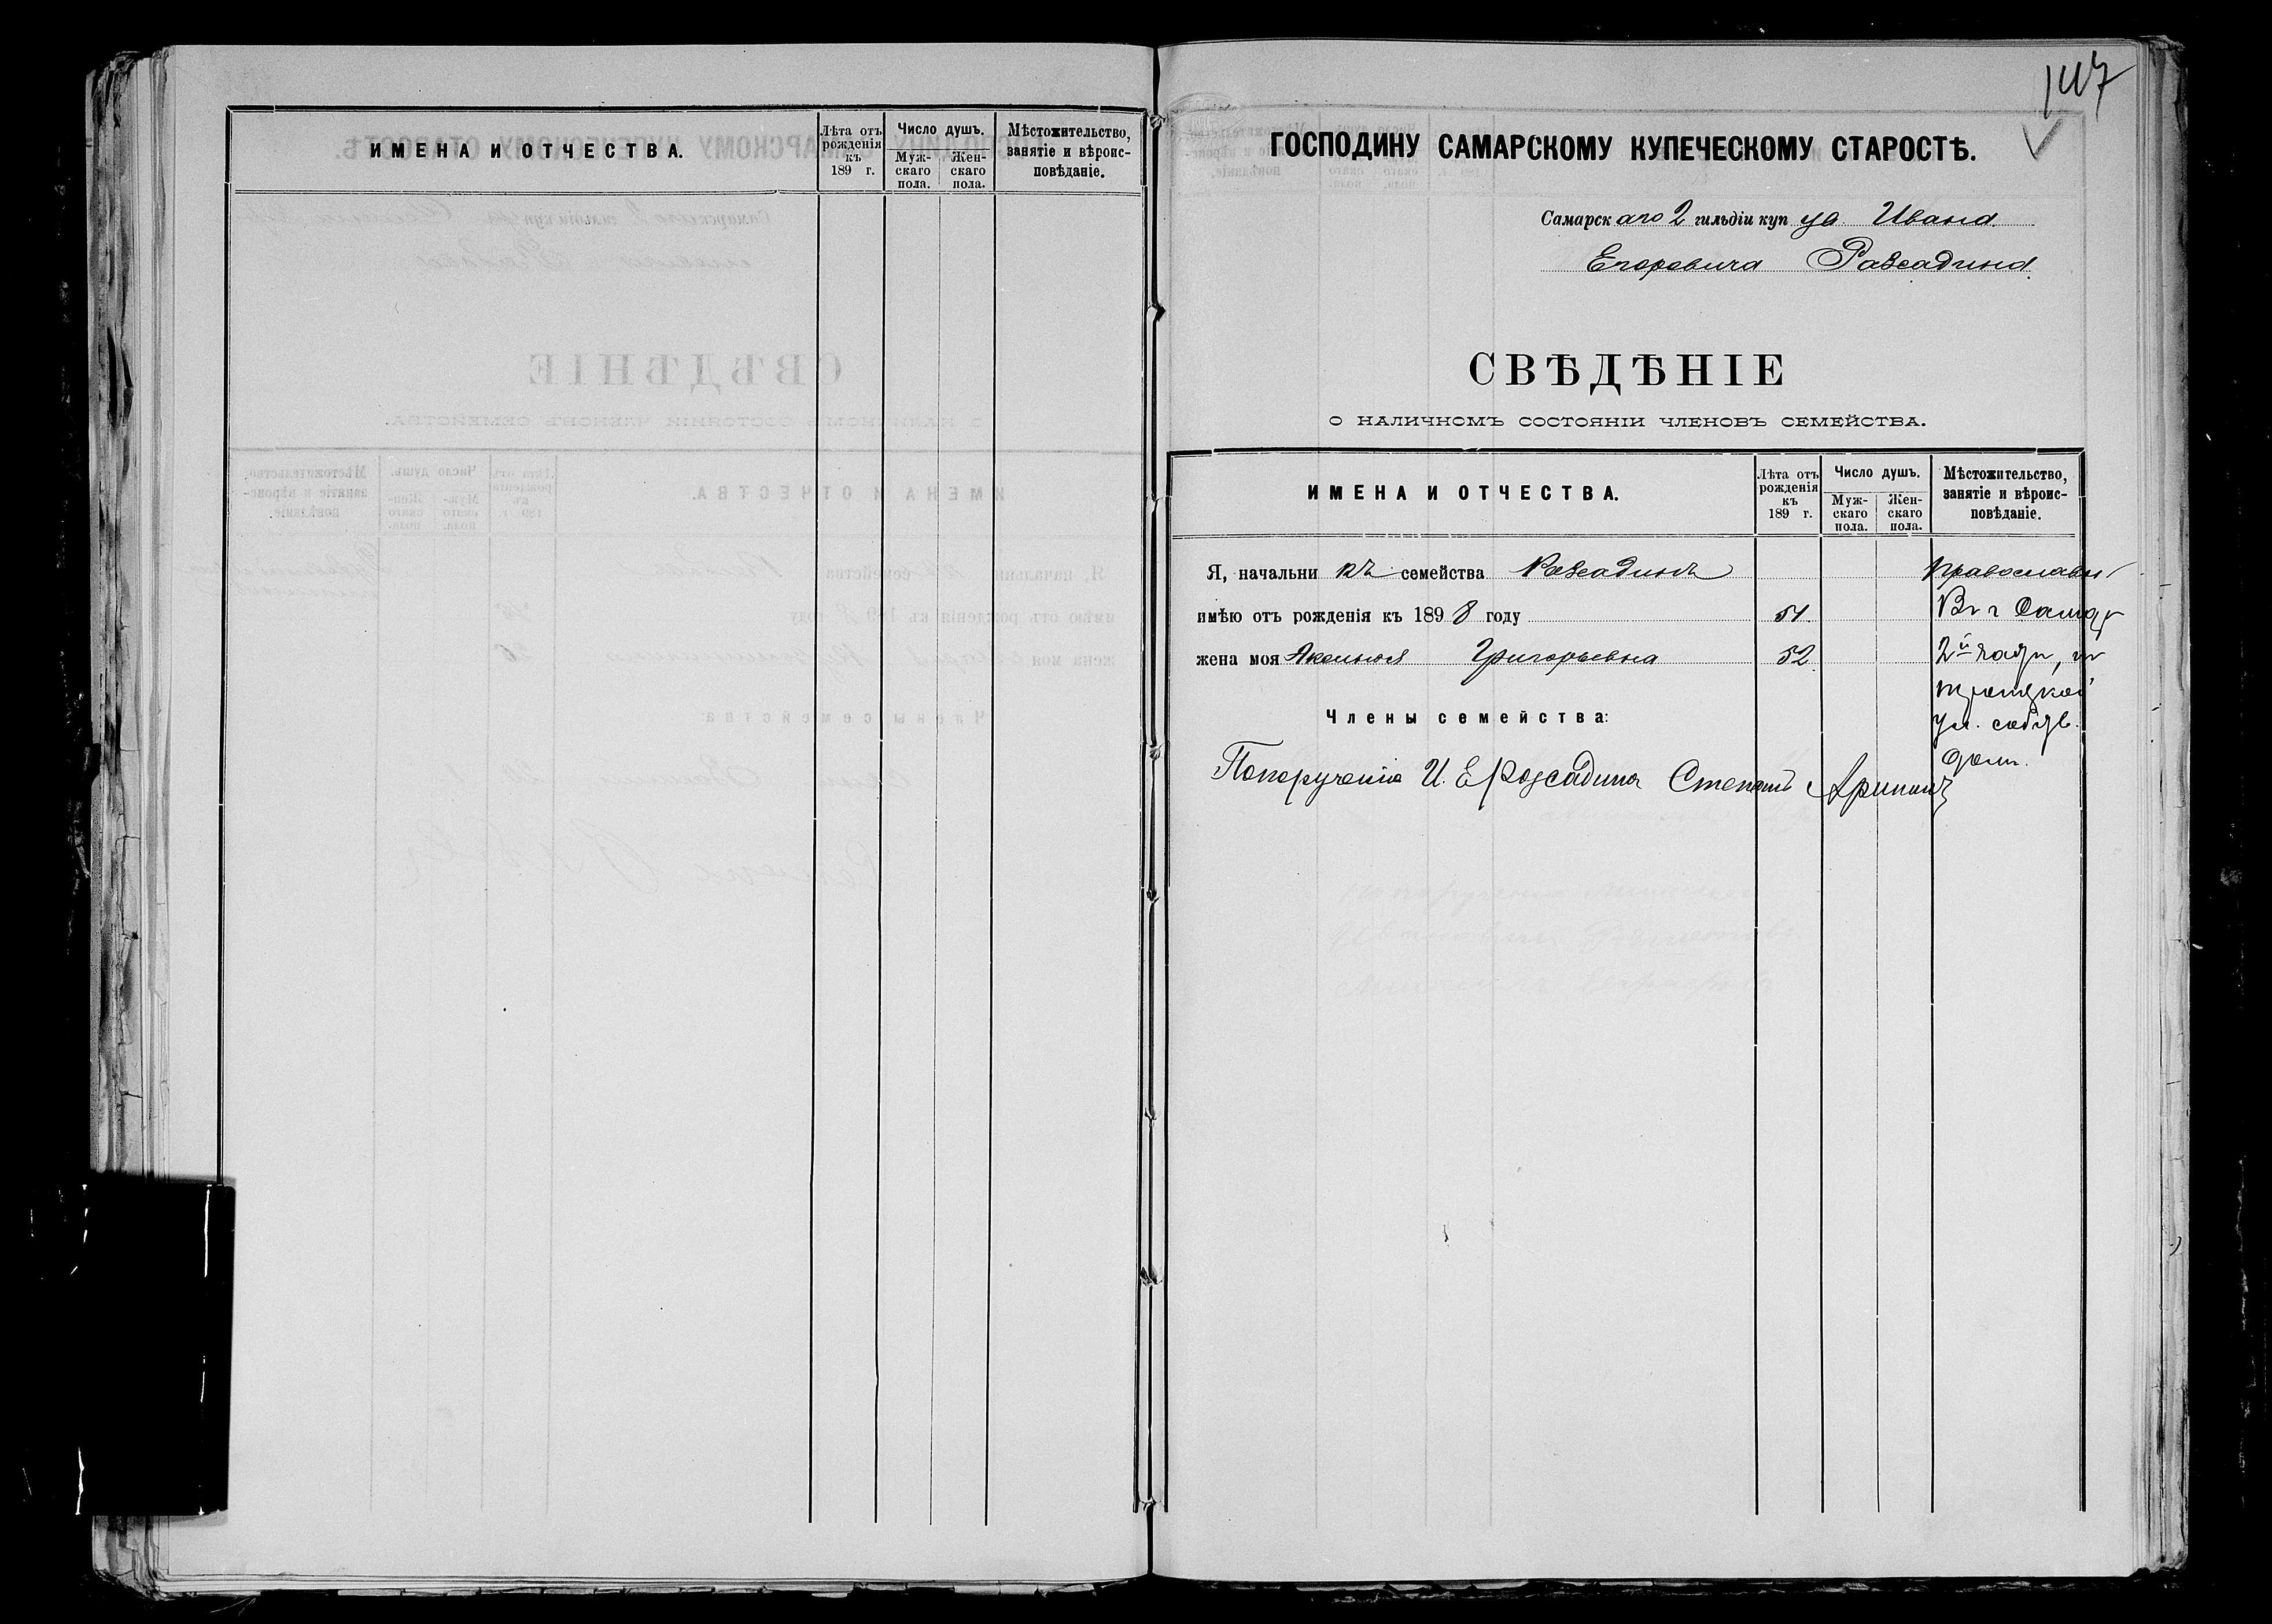 ИМЕНА И ОТЧЕСТВА.
Лѣта отъ рожденія къ 189 г.
Число душъ.
Мужскаго пола.
Женскаго пола.
Мѣстожительство, занятіе и вѣроисповѣданіе.
147
ГОСПОДИНУ САМАРСКОМУ КУПЕЧЕСКОМУ СТАРОСТѢ.
Самарскаго 2 гильдіи купца Ивана
Егоровича Разсадина
СВѢДѢНІЕ
О НАЛИЧНОМЪ СОСТОЯНІИ ЧЛЕНОВЪ СЕМЕЙСТВА.
ИМЕНА И ОТЧЕСТВА.
Лѣта отъ рожденія къ 189 г.
Число душъ.
Муж-скаго пола.
Жен-скаго пола.
Мѣстожительство, занятіе и вѣроис-повѣданіе.
Я, начальникъ семейства Разсадинъ Православн
имѣю отъ рожденія къ 1898 году 51. Въ г Самар
жена моя Аксинья Григорьевна 52. 2й части,
Троицкой
Члены семейства: ул. собств.
дом.
По порученію И. Е. Розсадина Степанъ